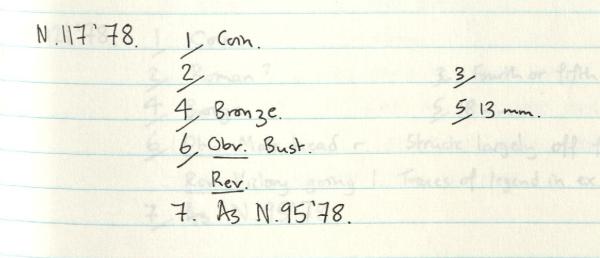 N.117'78. 1, Coin.
2, 3,
4, Bronze. 5, 13 mm.
6, Obv. Bust.
Rev.
7. As N.95'78.